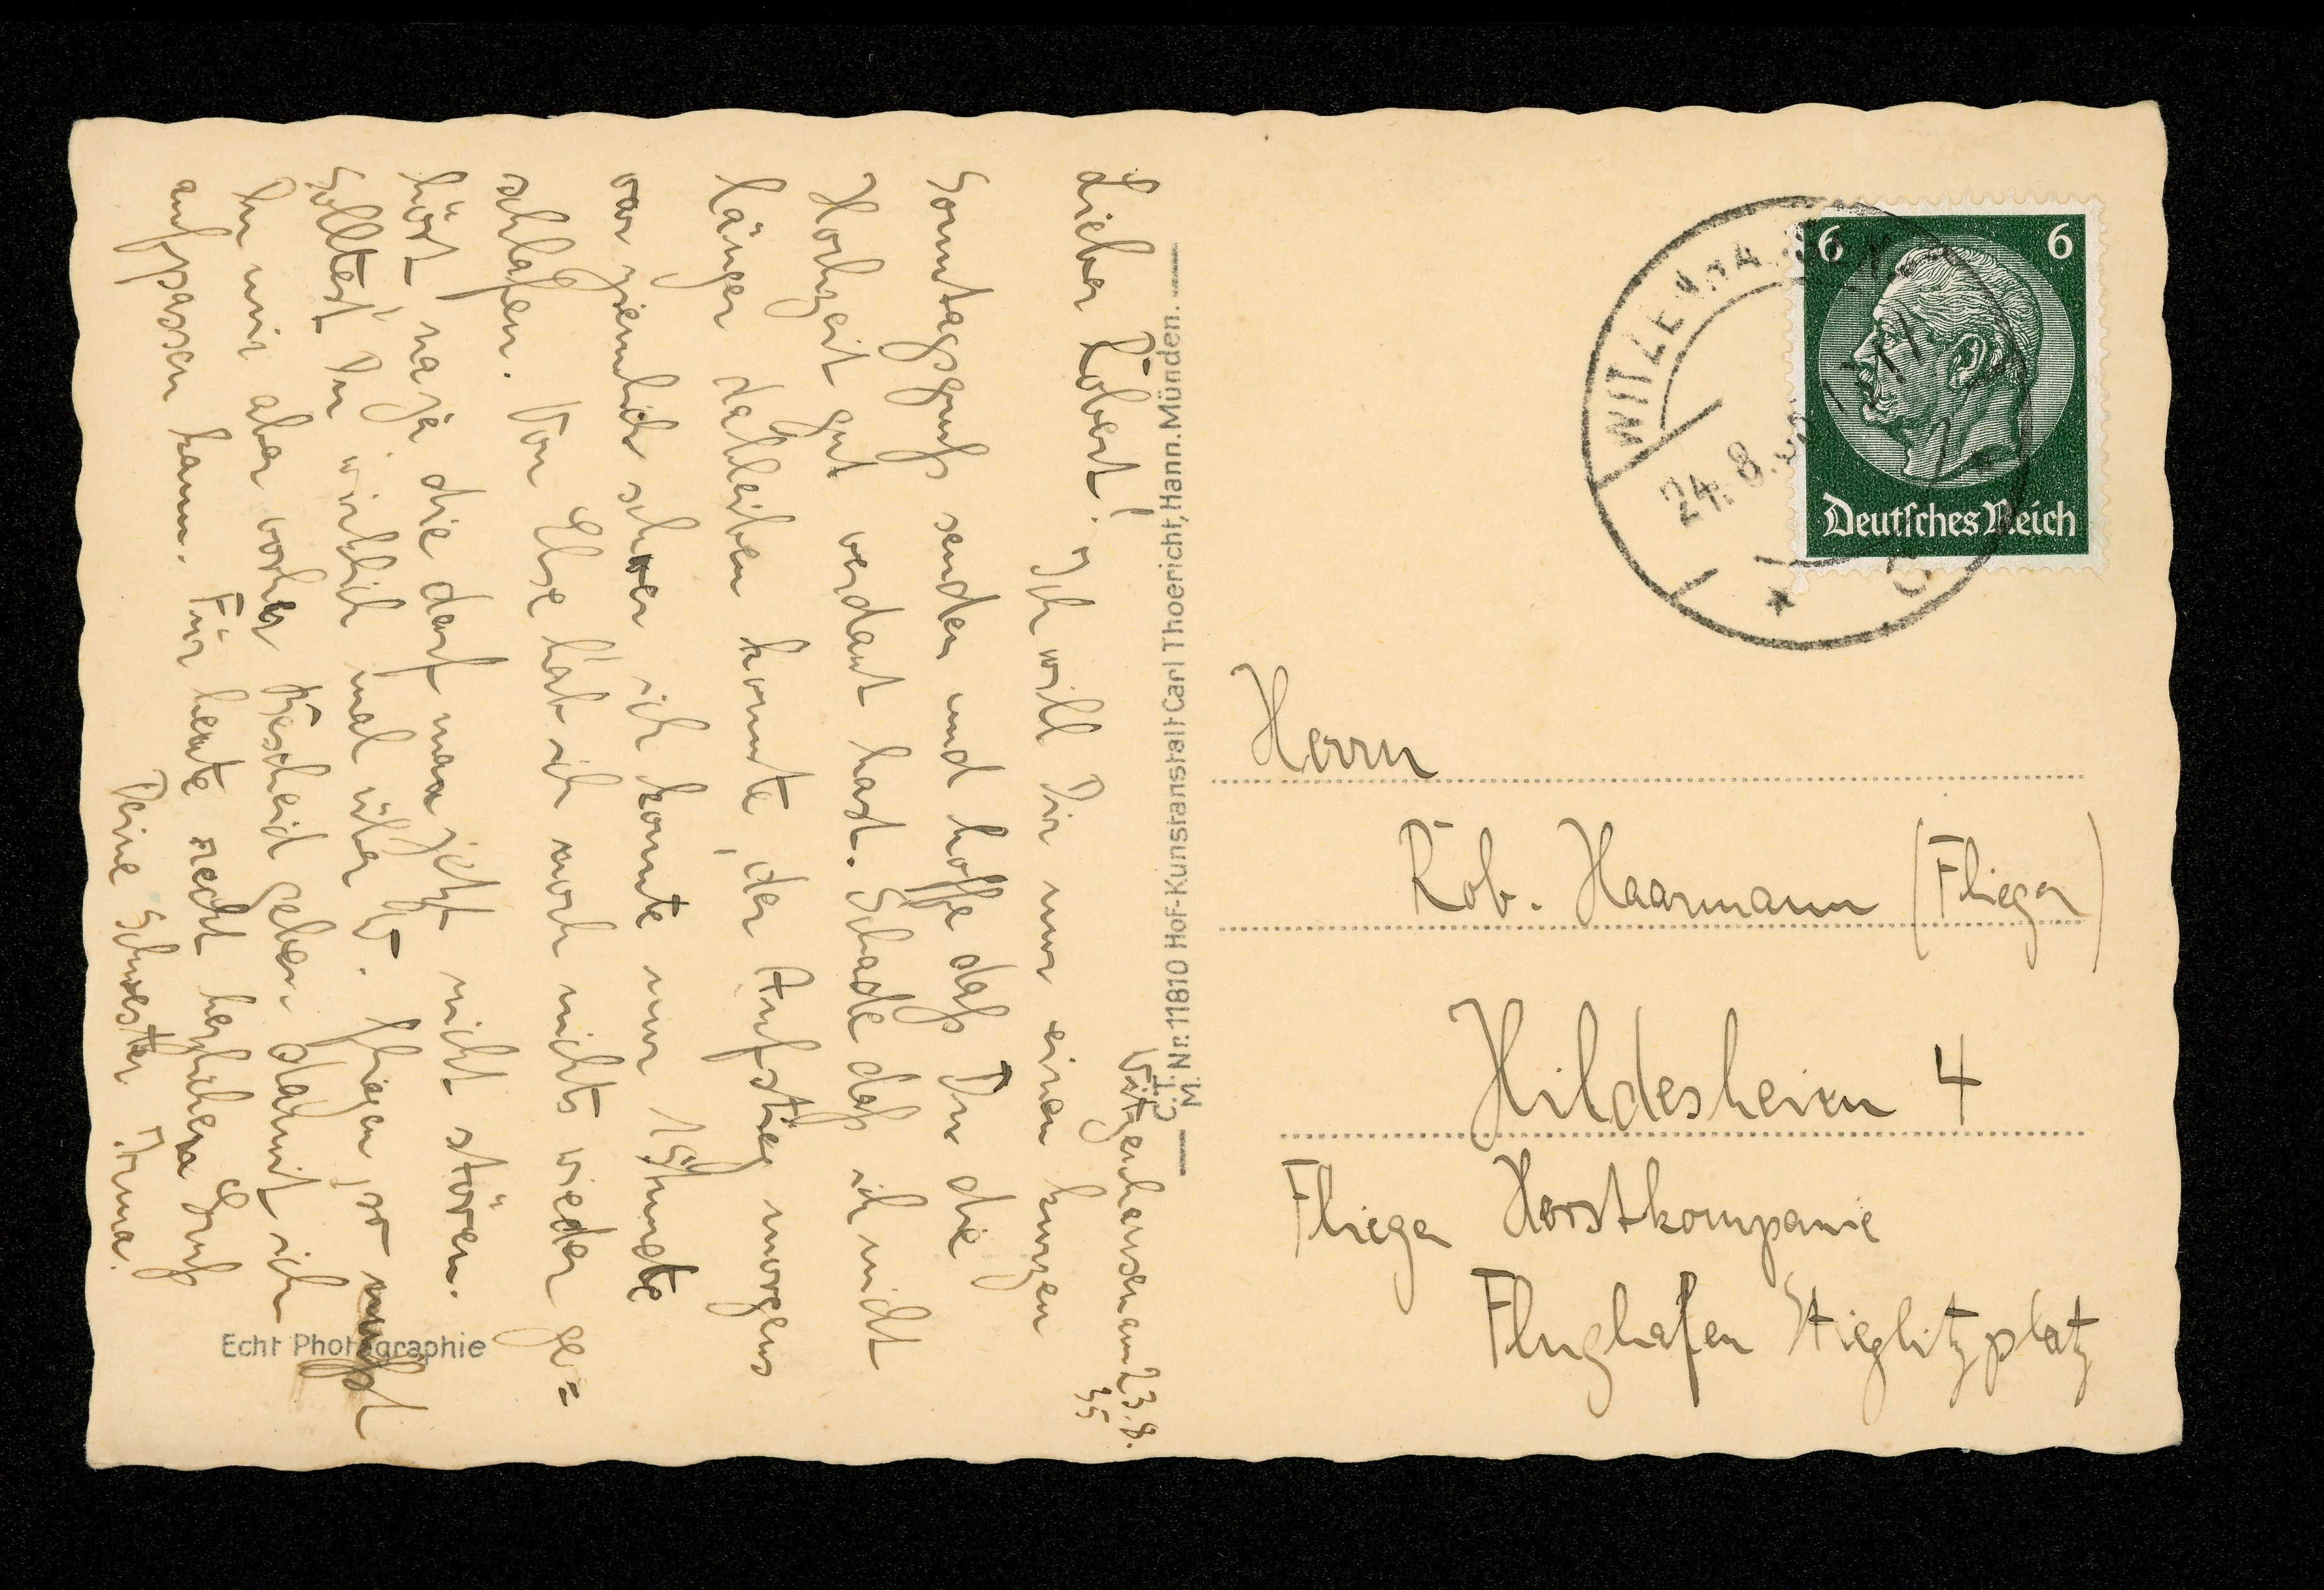 Witzenhausen am 23.8.
35
Lieber Robert! Ich will Dir nur einen kurzen
Sonntagsgruß senden und hoffe daß Du die
Hochzeit gut verdaut hast. Schade daß ich nicht
länger dableiben konnte, der Aufstieg morgens
war ziemlich schwer ich konnte nur 1 Stunde
schlafen. Von Else hab ich noch nichts wieder ge=
hört na ja die darf man jetzt nicht stören.
Solltest Du wirklich mal über W. fliegen, so mußt
Du mir aber vorher Bescheid geben damit ich
aufpassen kann. Für heute recht herzlichen Gruß
Deine Schwester Irma.
C.T.
M. Nr. 11810 Hof-Kunstanstalt Carl Thoericht, Hann. Münden.
Echt Photographie
WITZENHAUSEN
24.8.
6 6
Deutsches Reich
Herrn
Rob. Haarmann (Flieger)
Hildesheim 4
Flieger Horstkompanie
Flughafen Stieglitzplatz